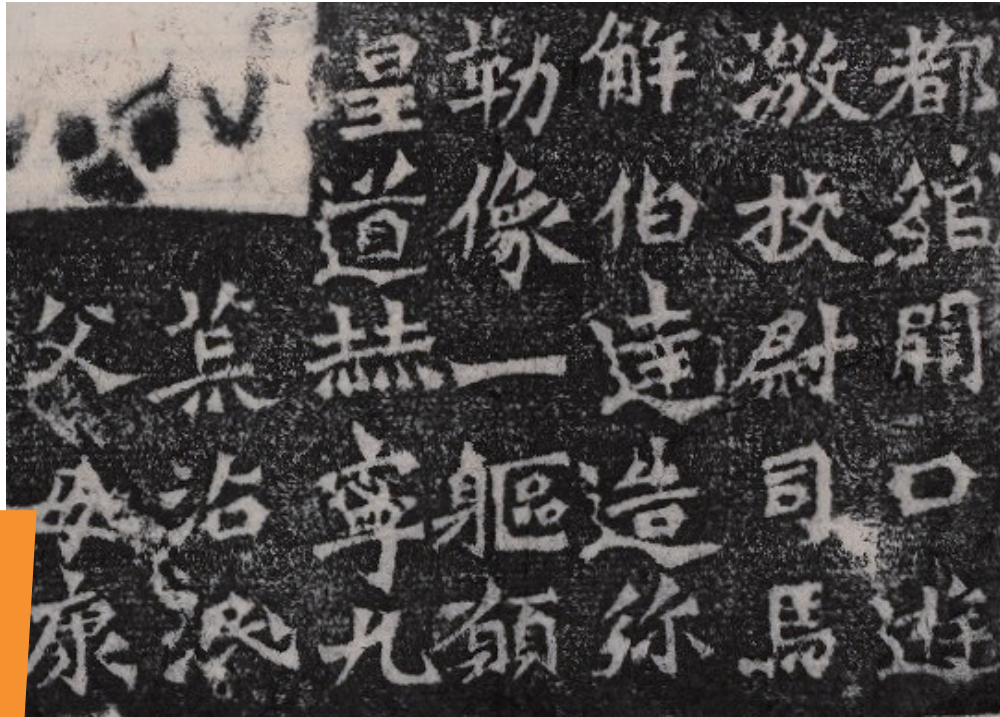 都綰闕口遊
激校尉司馬
解伯達造弥
勒像一軀願
皇道赫寧九
荒沾
父母康